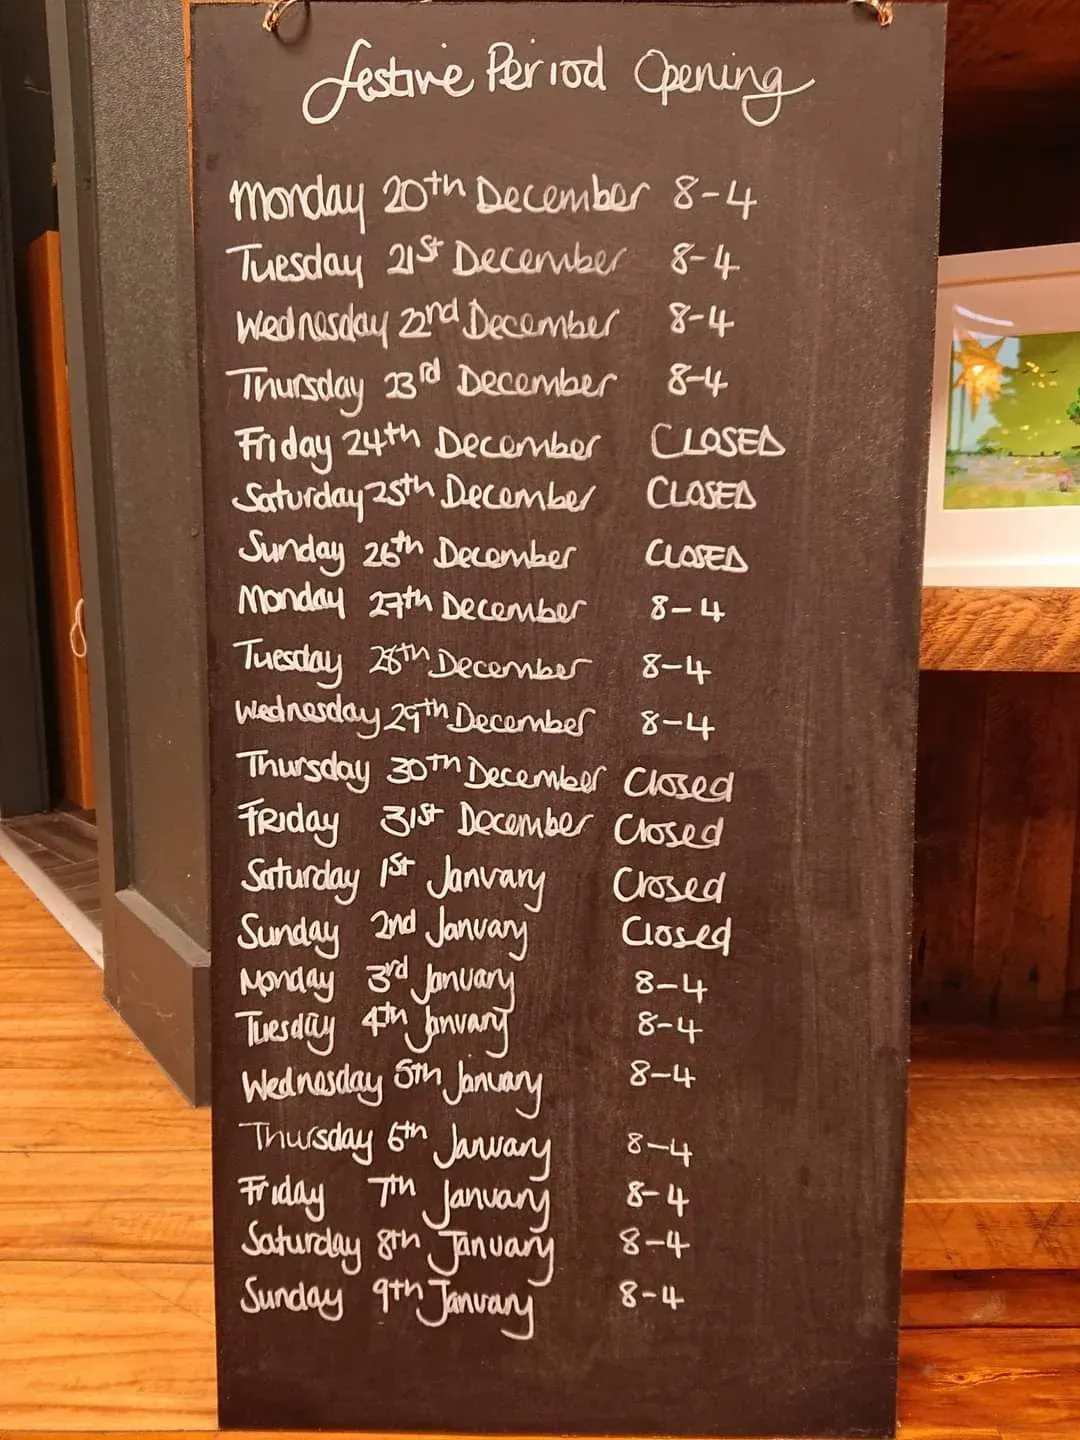 Festive Period Opening
Monday 20th December 8-4
Tuesday 21st December 8-4
Wednesday 22nd December 8-4
Thursday 23rd December 8-4
Friday 24th December CLOSED
Saturday 25th December CLOSED
Sunday 26th December CLOSED
Monday 27th December 8-4
Tuesday 28th December 8-4
Wednesday 29th December 8-4
Thursday 30th December Closed
FRIday 31st December Closed
Saturday 1st January Closed
Sunday 2nd January Closed
Monday 3rd January 8-4
Tuesday 4th January 8-4
Wednesday 5th January 8-4
Thursday 6th January 8-4
Friday 7th January 8-4
Saturday 8th January 8-4
Sunday 9th January 8-4